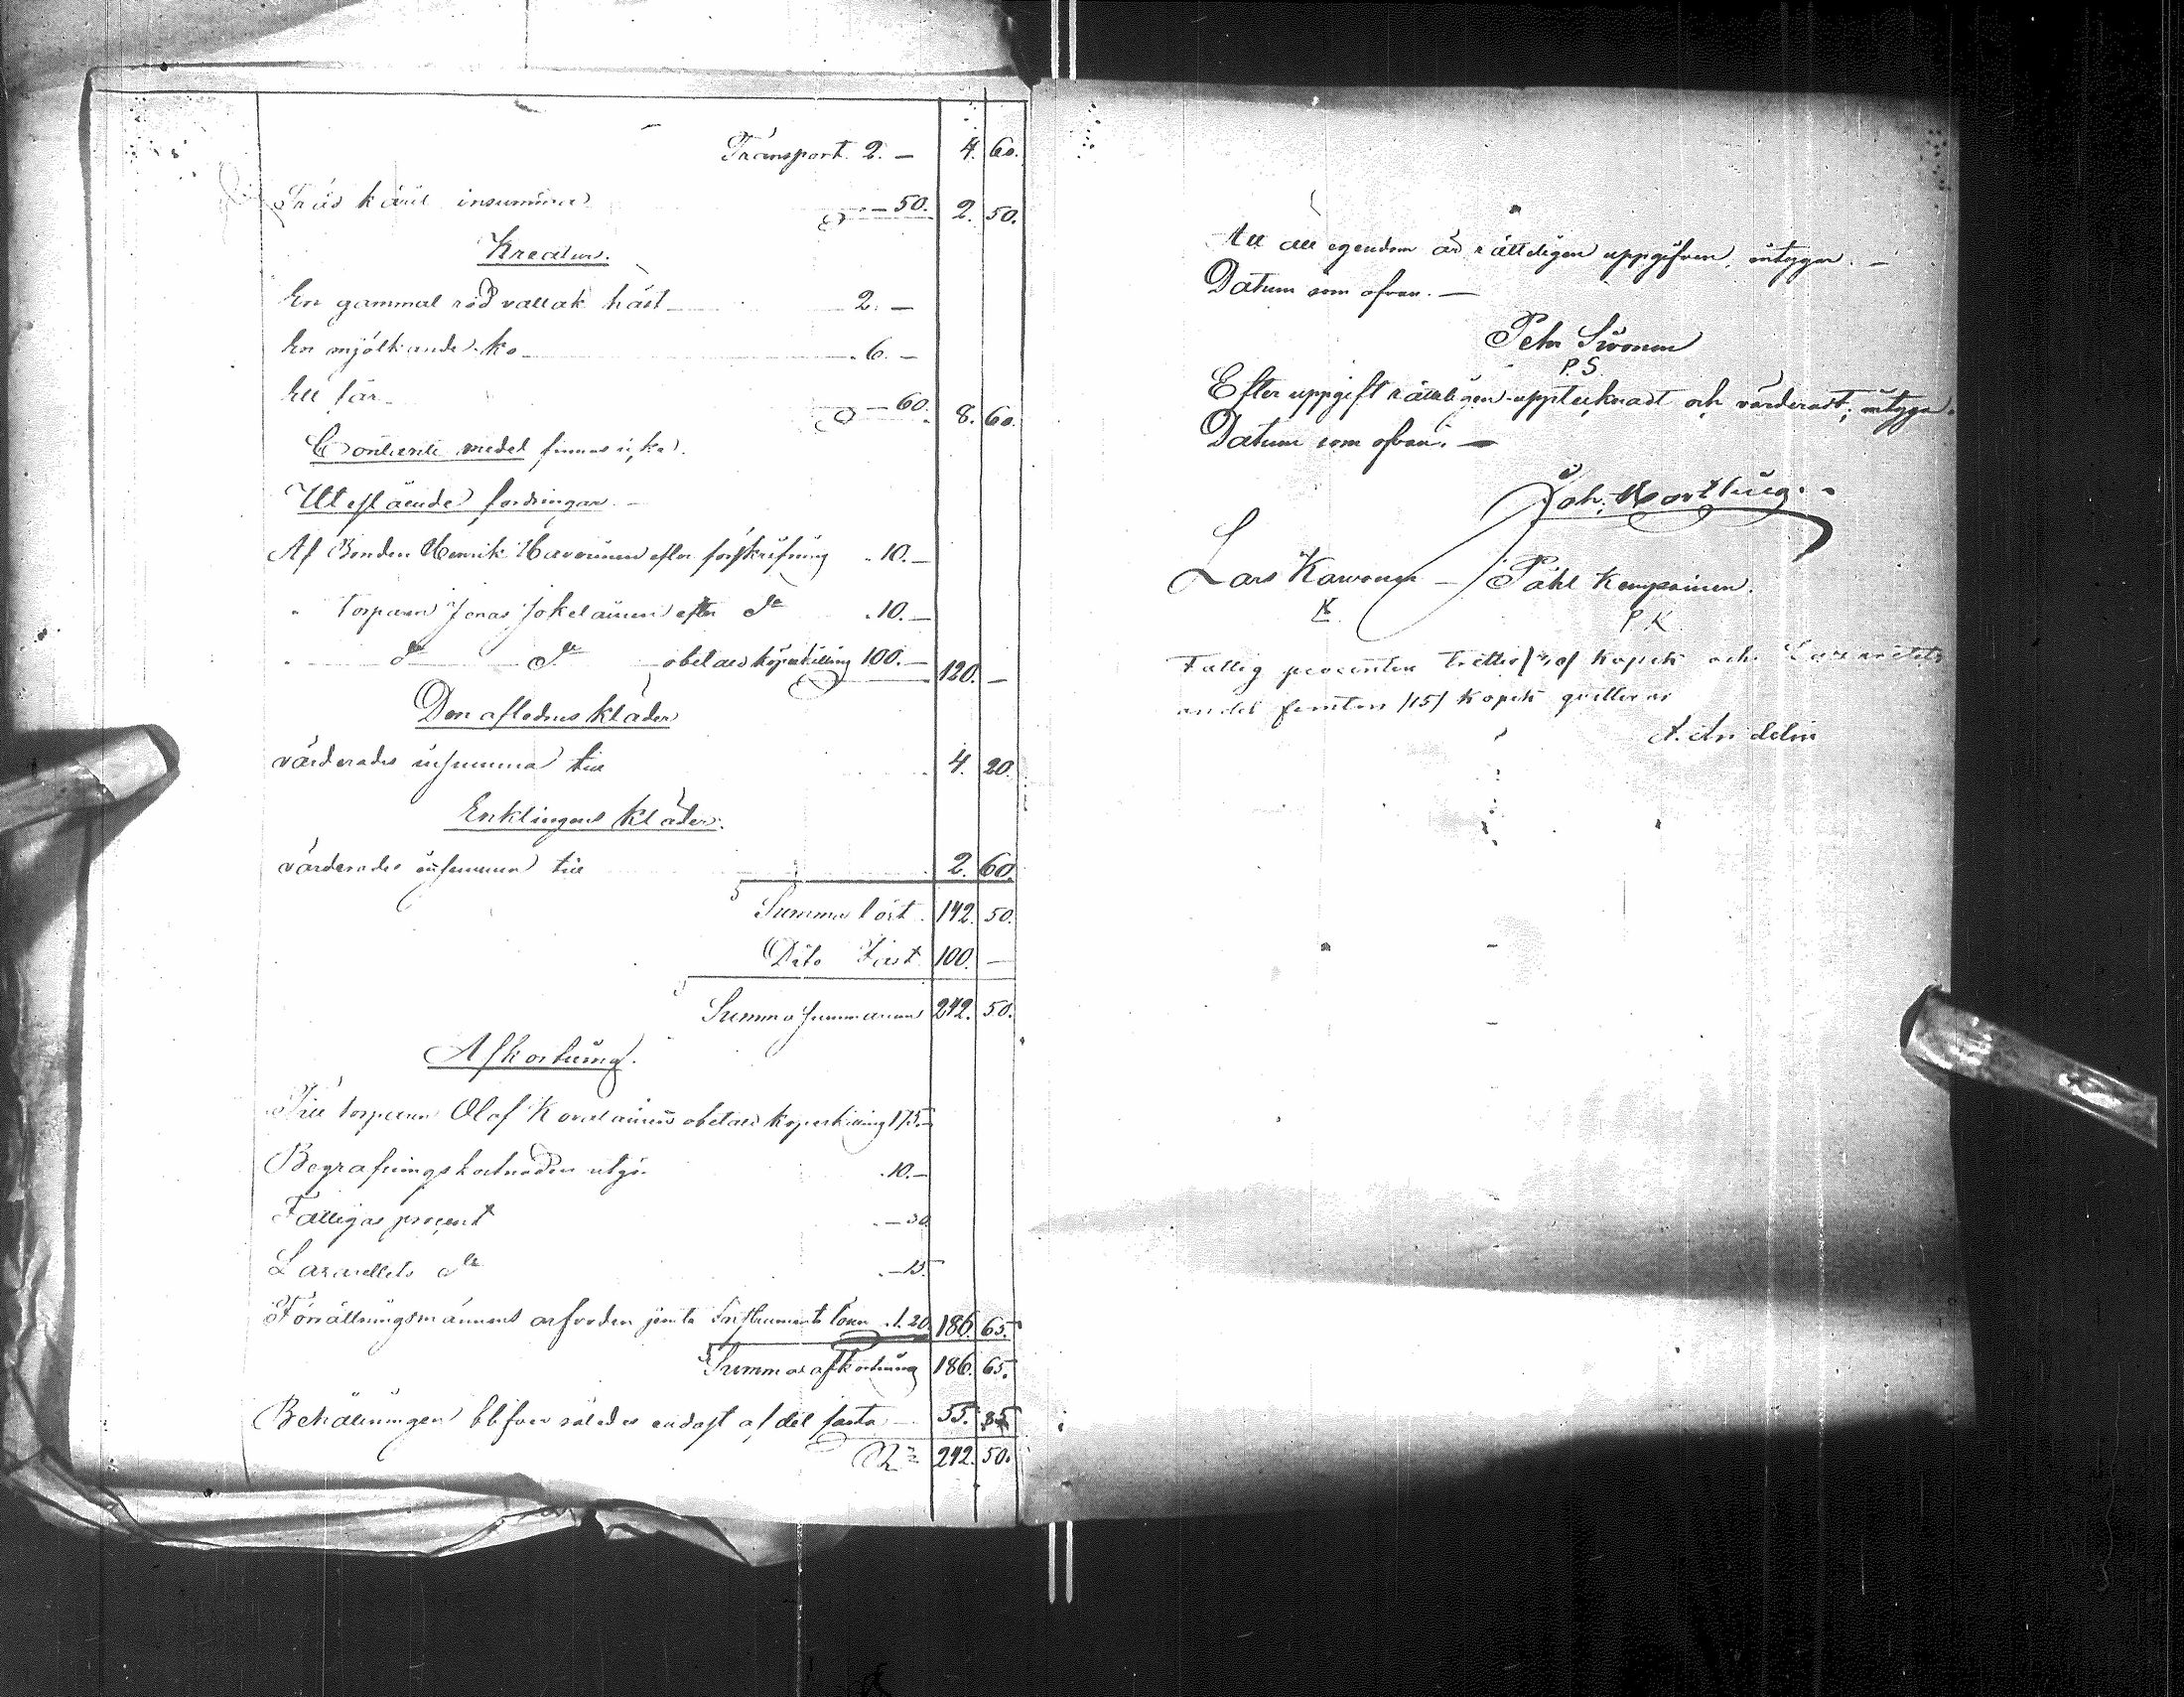 Transport. 2. — 4. 60.
Träd käril insumma — 50. 2. 50.
Kreatur.
En gammal röd vallak häst 2. —
En mjölkande ko 6. —
Ett får — 60. 8. 60.
Contanta medel finnas icke.
Utestående fordringar. —
Af Bonden Henrik Haverinen efter förskrifning 10. —
" torparen Jonas Jokelainen efter do 10. —
" do do obetald köpeskilling 100. — 120. —
Den aflednes kläder
värderades insumma till 4. 20.
Enklingens kläder.
värderades insumma till 2. 60.
Summa löst. 142. 50.
Dito Fast 100. —
Summa summarum 242. 50.
Afkortning.
Till torparen Olof Kovalainens obetald köpeskilling 175. —
Begrafningskostnaden utgör 10. —
Fattigas procent — 30.
Lazarettets do — 15.
Förrättningsmännens arfvoden jemte Instruments lösen 1. 20. 186. 65.
Summa afkortning 186. 65.
Behållningen blifver således endast af det fasta 55. 85.
242. 50.
Att all egendom är rätteligen uppgifven, intygar. —
Datum som ofvan. —
Petr Sivonen
P. S.
Efter uppgift rätteligen upptecknadt och värderadt; intyga.
Datum som ofvan. —
Joh.
Lars Kavonen — Påhl Kempainen.
K. P. K.
Fattig procenten trettio /30/ kopek och Lazarettets
andel femton /15/ kopek qvitteras